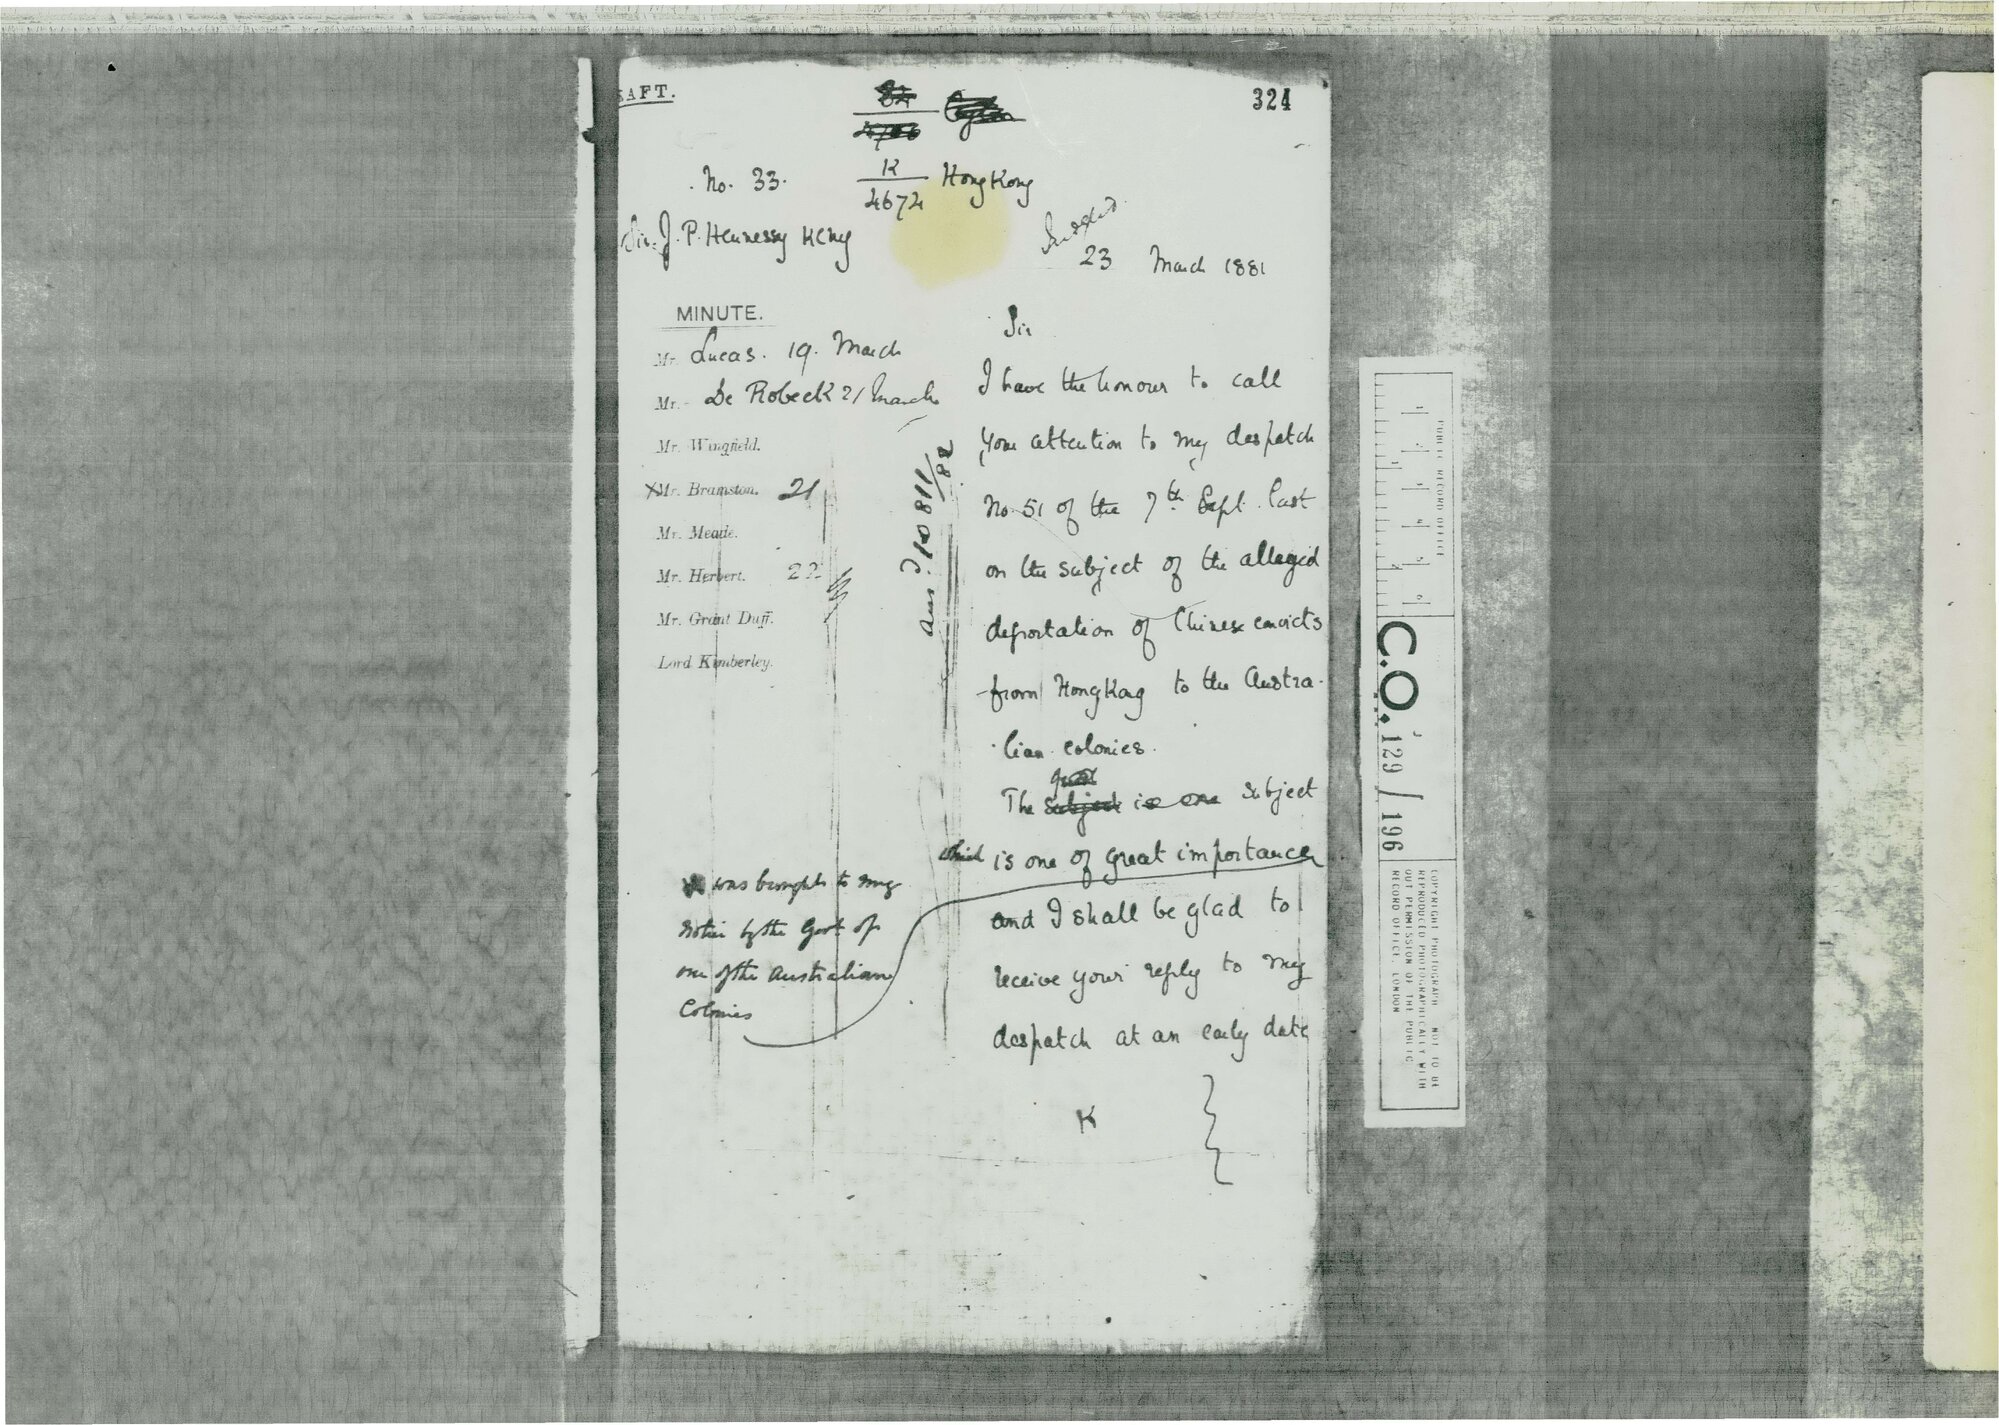 RAFT.
324
No. 33.
K
4672
Hong Kong
Sir J. P. Hennessy KCMG
23 March 1881
MINUTE.
Mr. Lucas. 19. March
Mr. De Robeck 21 March
Mr. Wingfield.
Mr. Bramston. 21
Mr. Meade.
Mr. Herbert. 22
Mr. Grant Duff.
Lord Kimberley.
ansd. 10811/82
Sir
I have the honour to call
your attention to my despatch
No. 51 of the 7th Sept. last
on the subject of the alleged
deportation of Chinese convicts
from Hong Kong to the Austra-
lian colonies.
The subject is one subject
which is one of great importance
was brought to my
notice by the Govt of
one of the Australian
Colonies
and I shall be glad to
receive your reply to my
despatch at an early date
K
PUBLIC RECORD OFFICE
C.O. 129/196
COPYRIGHT PHOTOGRAPH - NOT TO BE
REPRODUCED PHOTOGRAPHICALLY WITH
OUT PERMISSION OF THE PUBLIC
RECORD OFFICE, LONDON